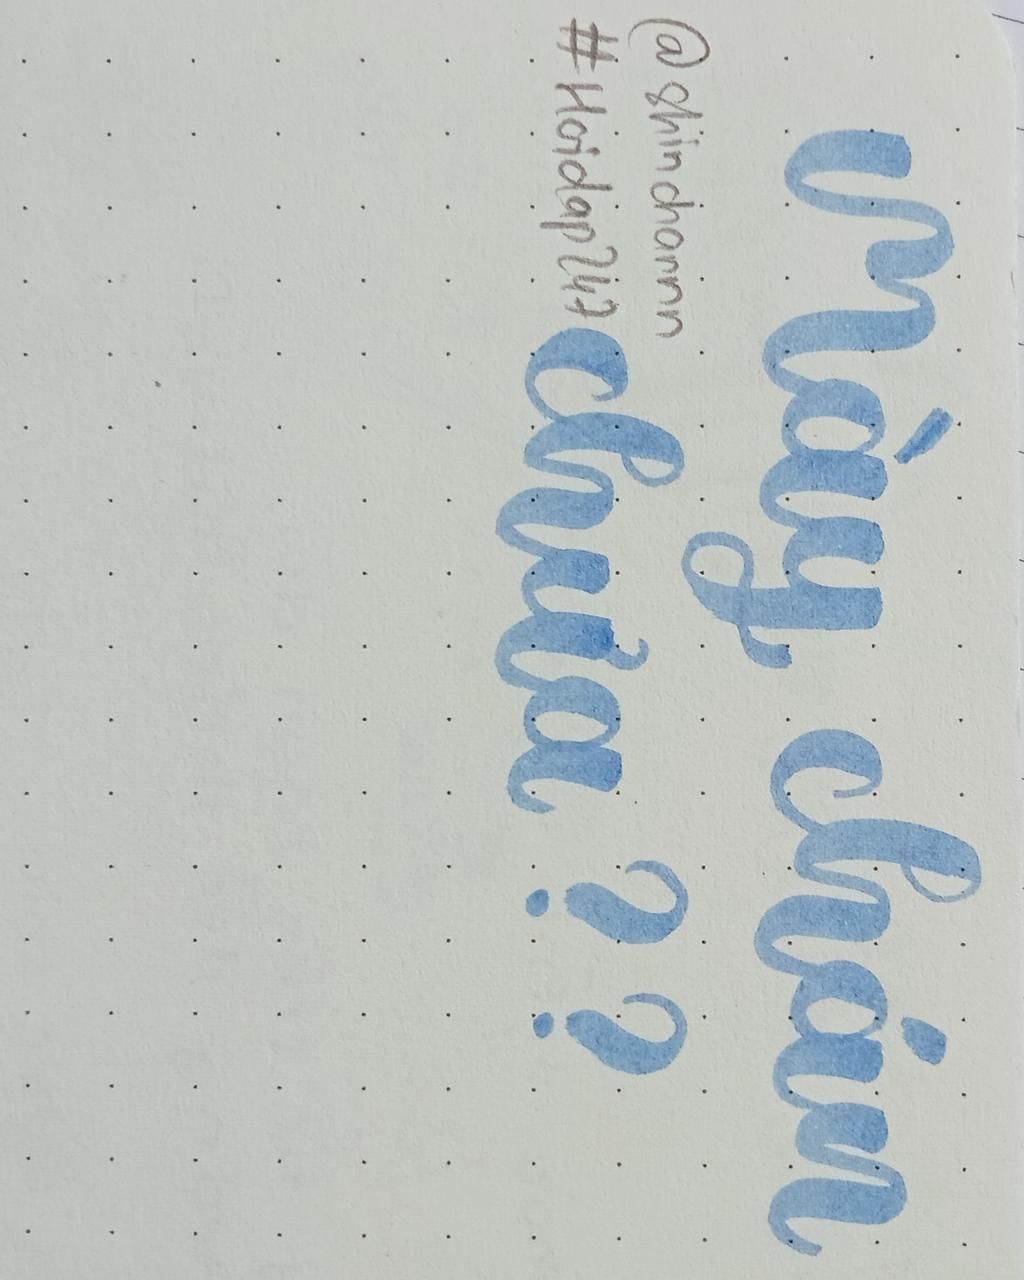 mày chán
chưa ??
@shinchannn
#Hoidap247